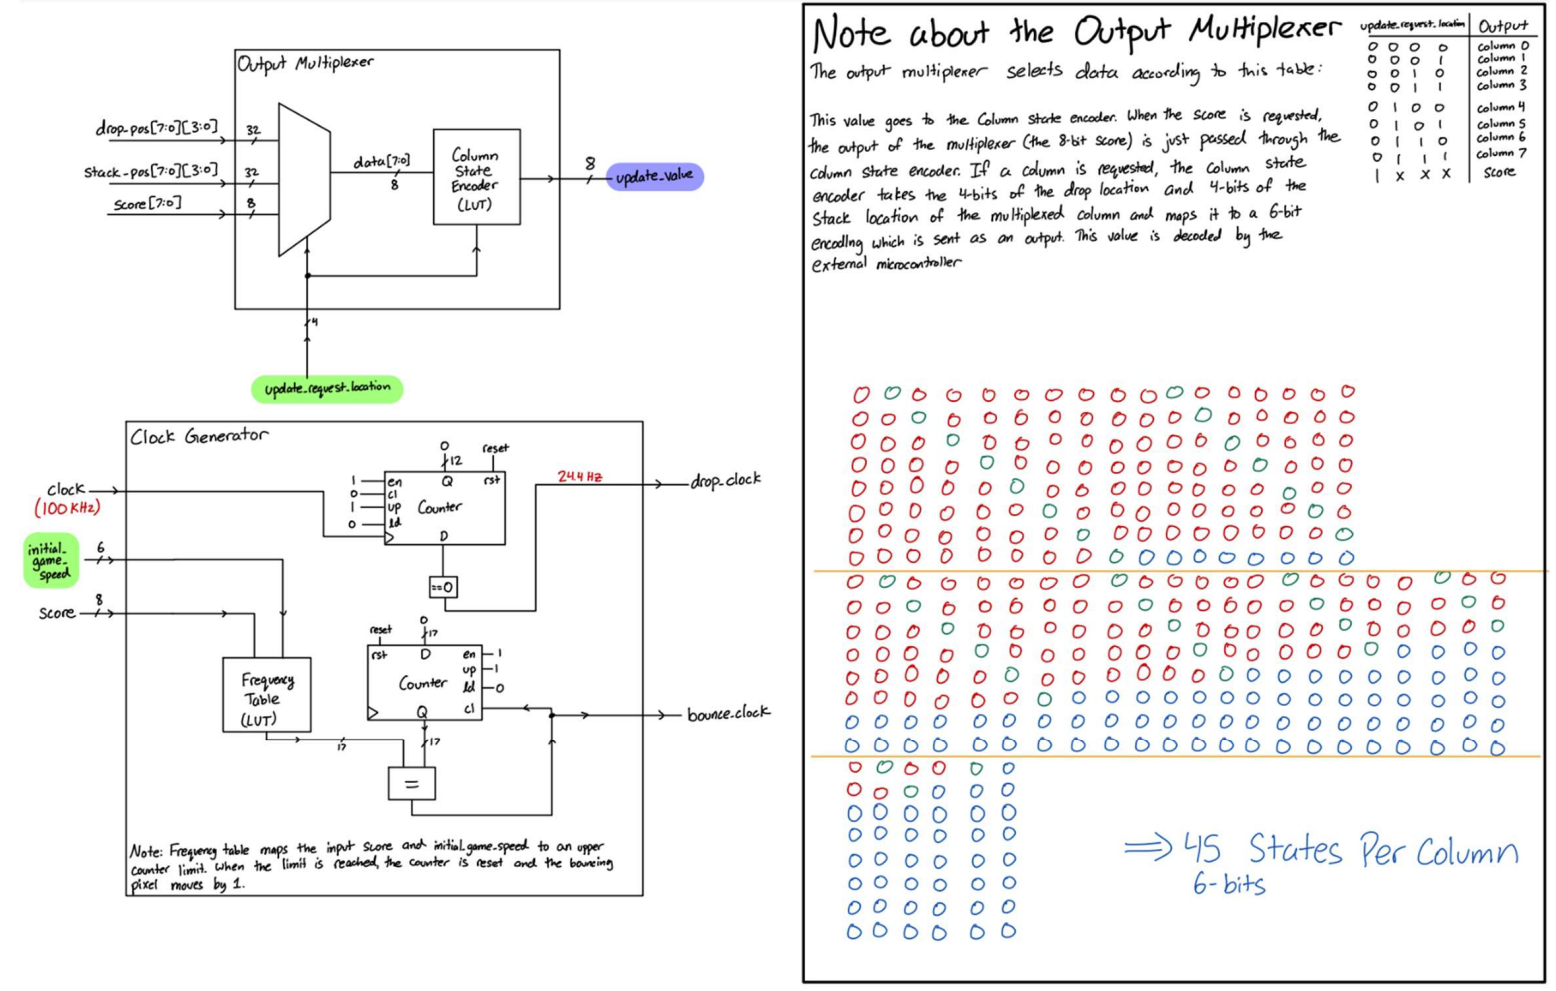 Output Multiplexer
drop_pos[7:0][3:0]
32
stack_pos[7:0][3:0]
32
score[7:0]
8
data[7:0]
8
Column
State
Encoder
(LUT)
8
update_value
4
update_request_location
Clock Generator
clock
(100 KHz)
initial_
game_
speed
6
score
8
0
12
reset
1
en
Q
rst
0
cl
1
up
Counter
0
ld
D
==0
24.4 Hz
drop_clock
reset
0
17
rst
D
en
1
up
1
Counter
ld
0
cl
Q
17
Frequency
Table
(LUT)
17
=
bounce_clock
Note: Frequency table maps the input score and initial_game_speed to an upper
counter limit. When the limit is reached, the counter is reset and the bouncing
pixel moves by 1.
Note about the Output Multiplexer
The output multiplexer selects data according to this table:
update_request_location Output
0 0 0 0 column 0
0 0 0 1 column 1
0 0 1 0 column 2
0 0 1 1 column 3
0 1 0 0 column 4
0 1 0 1 column 5
0 1 1 0 column 6
0 1 1 1 column 7
1 x x x score
This value goes to the Column State encoder. When the score is requested,
the output of the multiplexer (the 8-bit score) is just passed through the
column state encoder. If a column is requested, the column state
encoder takes the 4-bits of the drop location and 4-bits of the
stack location of the multiplexed column and maps it to a 6-bit
encoding which is sent as an output. This value is decoded by the
external microcontroller
⇒ 45 States Per Column
6-bits